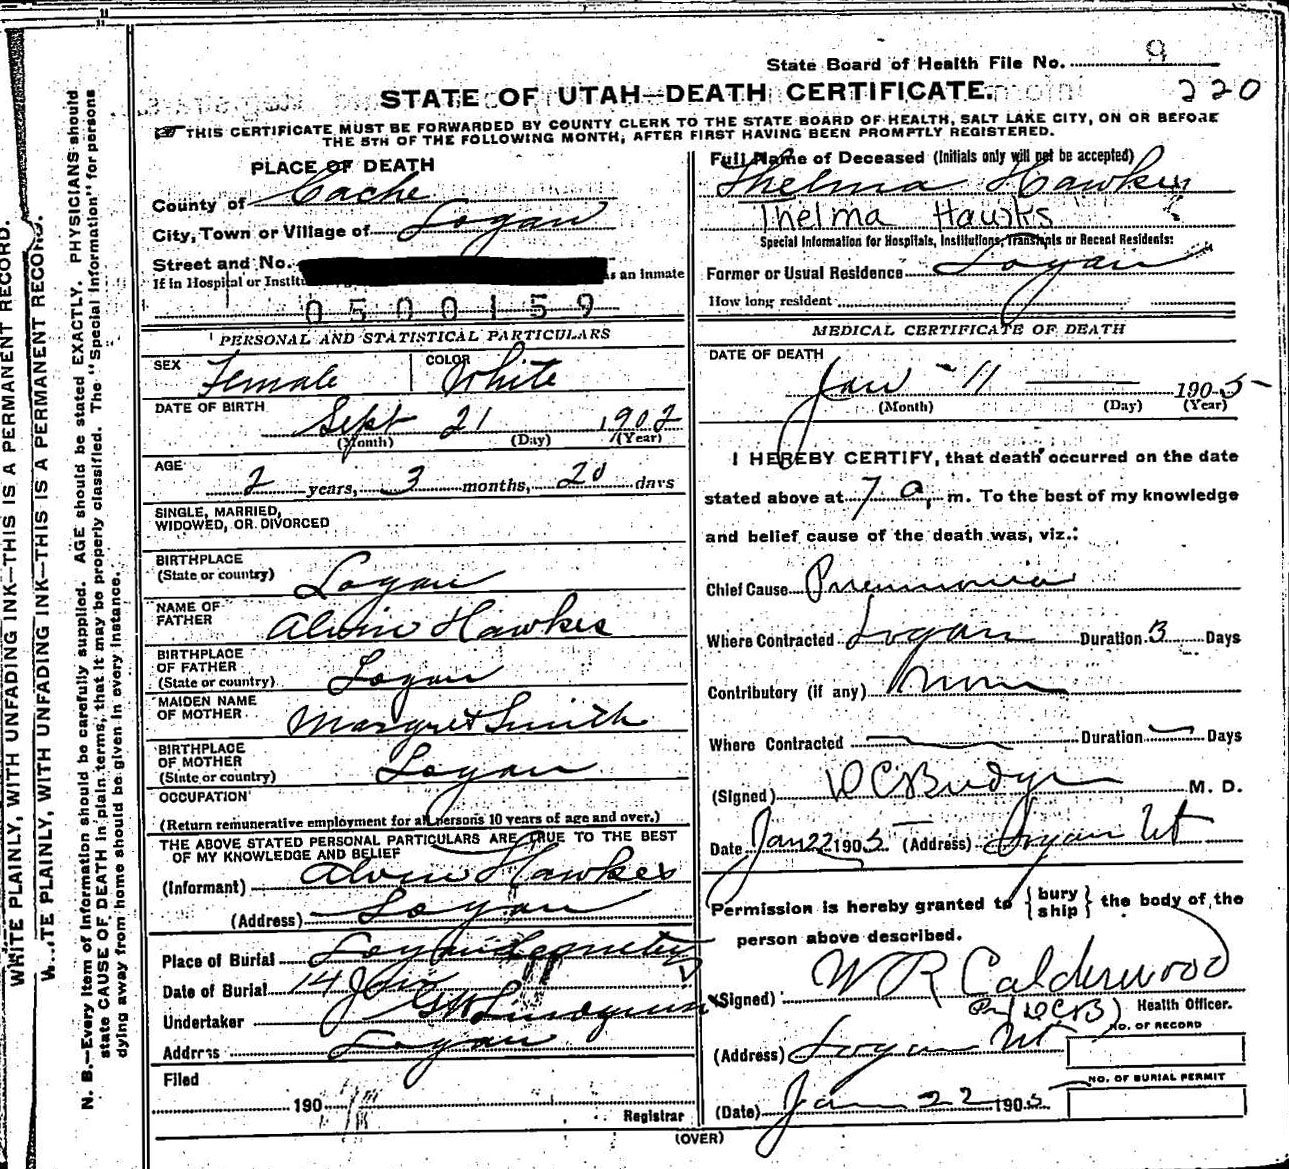 State Board of Health File No. 9
STATE OF UTAH—DEATH CERTIFICATE.
220
THIS CERTIFICATE MUST BE FORWARDED BY COUNTY CLERK TO THE STATE BOARD OF HEALTH, SALT LAKE CITY, ON OR BEFORE
THE 5TH OF THE FOLLOWING MONTH, AFTER FIRST HAVING BEEN PROMPTLY REGISTERED.
PLACE OF DEATH
County of Cache
City, Town or Village of Logan
Street and No.
If in Hospital or Institu as an inmate
0500159
PERSONAL AND STATISTICAL PARTICULARS
SEX Female COLOR White
DATE OF BIRTH
Sept 21 1902
(Month) (Day) (Year)
AGE
2 years, 3 months, 20 days
SINGLE, MARRIED,
WIDOWED, OR DIVORCED
BIRTHPLACE
(State or country) Logan
NAME OF
FATHER Alvin Hawkes
BIRTHPLACE
OF FATHER
(State or country) Logan
MAIDEN NAME
OF MOTHER Margret Smith
BIRTHPLACE
OF MOTHER
(State or country) Logan
OCCUPATION
(Return remunerative employment for all persons 10 years of age and over.)
THE ABOVE STATED PERSONAL PARTICULARS ARE TRUE TO THE BEST
OF MY KNOWLEDGE AND BELIEF
(Informant) Alvin Hawkes
(Address) Logan
Place of Burial Logan Cemetery
Date of Burial 14 Jan
Undertaker GW Lindquist
Address Logan
Filed
190
Registrar
Full Name of Deceased (Initials only will not be accepted)
Thelma Hawkes
Thelma Hawks
Special Information for Hospitals, Institutions, Transients or Recent Residents:
Former or Usual Residence Logan
How long resident
MEDICAL CERTIFICATE OF DEATH
DATE OF DEATH
Jan - 11 1905
(Month) (Day) (Year)
I HEREBY CERTIFY, that death occurred on the date
stated above at 7 a, m. To the best of my knowledge
and belief cause of the death was, viz.:
Chief Cause Pneumonia
Where Contracted Logan Duration 3 Days
Contributory (if any) None
Where Contracted — Duration — Days
(Signed) D C Budge M. D.
Date Jan 22 1905. (Address) Logan Ut
Permission is hereby granted to {bury ship} the body of the
person above described.
(Signed) W R Calderwood
Pr (DCB) Health Officer.
(Address) Logan Ut
NO. OF RECORD
NO. OF BURIAL PERMIT
(Date) Jan 22 1905
(OVER)
WRITE PLAINLY, WITH UNFADING INK—THIS IS A PERMANENT RECORD.
W...ITE PLAINLY, WITH UNFADING INK—THIS IS A PERMANENT RECORD.
N. B.—Every item of information should be carefully supplied. AGE should be stated EXACTLY. PHYSICIANS should
state CAUSE OF DEATH in plain terms, that it may be properly classified. The "Special Information" for persons
dying away from home should be given in every instance.